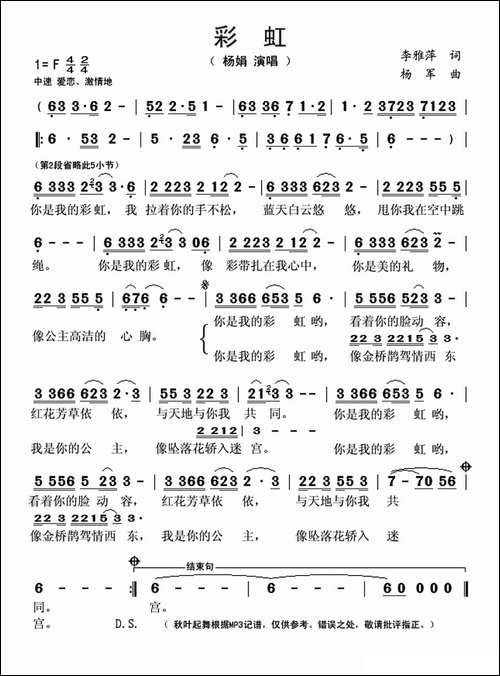 彩 虹
( 杨娟 演唱 )
1=F 4/4 2/4
李雅萍 词
杨 军 曲
中速 爱恋、激情地
( 63 3·6 2 - | 52 2·5 1 - | 63 36 7 1·2 | 3 - 3723 7123
‖: 6 · 53 2 - | 5 · 23 6 - | 3 6 6 1 7·6 5 · | 6 - - - ) |
(第2段省略此5小节)
6 333 2 3 3 3·6 | 2 223 2 12 6 - | 6 333 623 2 - | 2 223 55 5 |
你是我的彩虹, 我 拉着你的手不松, 蓝天白云悠 悠, 甩你我在空中跳
6 - - - | 6 333 2 3 3 06 | 2 223 2 12 2 - | 6 333 623 2 - |
绳。 你是我的彩虹, 像 彩带扎在我心中, 你是美的礼 物,
22 3 55 5 | 676 6 - - | 3 366 653 5 - | 5 556 523 3 - |
像公主高洁的 心 胸。 你是我的彩 虹哟, 看着你的脸动 容,
22 3 2215 3 3·
你是我的彩 虹哟, 像金桥鹊驾情西 东
3 366 623 3 - | 55 3 223 - | 2123 3 - - | 3 366 653 5 6 · |
红花芳草依 依, 与天地与你我 共 同。 你是我的彩 虹哟,
2 212 | 3 - - -
我是你的公 主, 像坠落花轿入迷 宫。 你是我的彩 虹哟,
5 556 5 23 3 - | 3 366 623 3 - | 55 3 5 35 6 · | 7 - 70 56 |
看着你的脸 动 容, 红花芳草依 依, 与天地与你我 共
22 3 2215 3 3 ·
像金桥鹊驾情西 东, 我是你的公 主, 像坠落花轿入 迷
结束句
6 - - - :‖ 6 - - - | 6 - - - | 60 0 0 0 ‖
同。 宫。
宫。 D.S. ( 秋叶起舞根据MP3记谱，仅供参考。错误之处，敬请批评指正。)